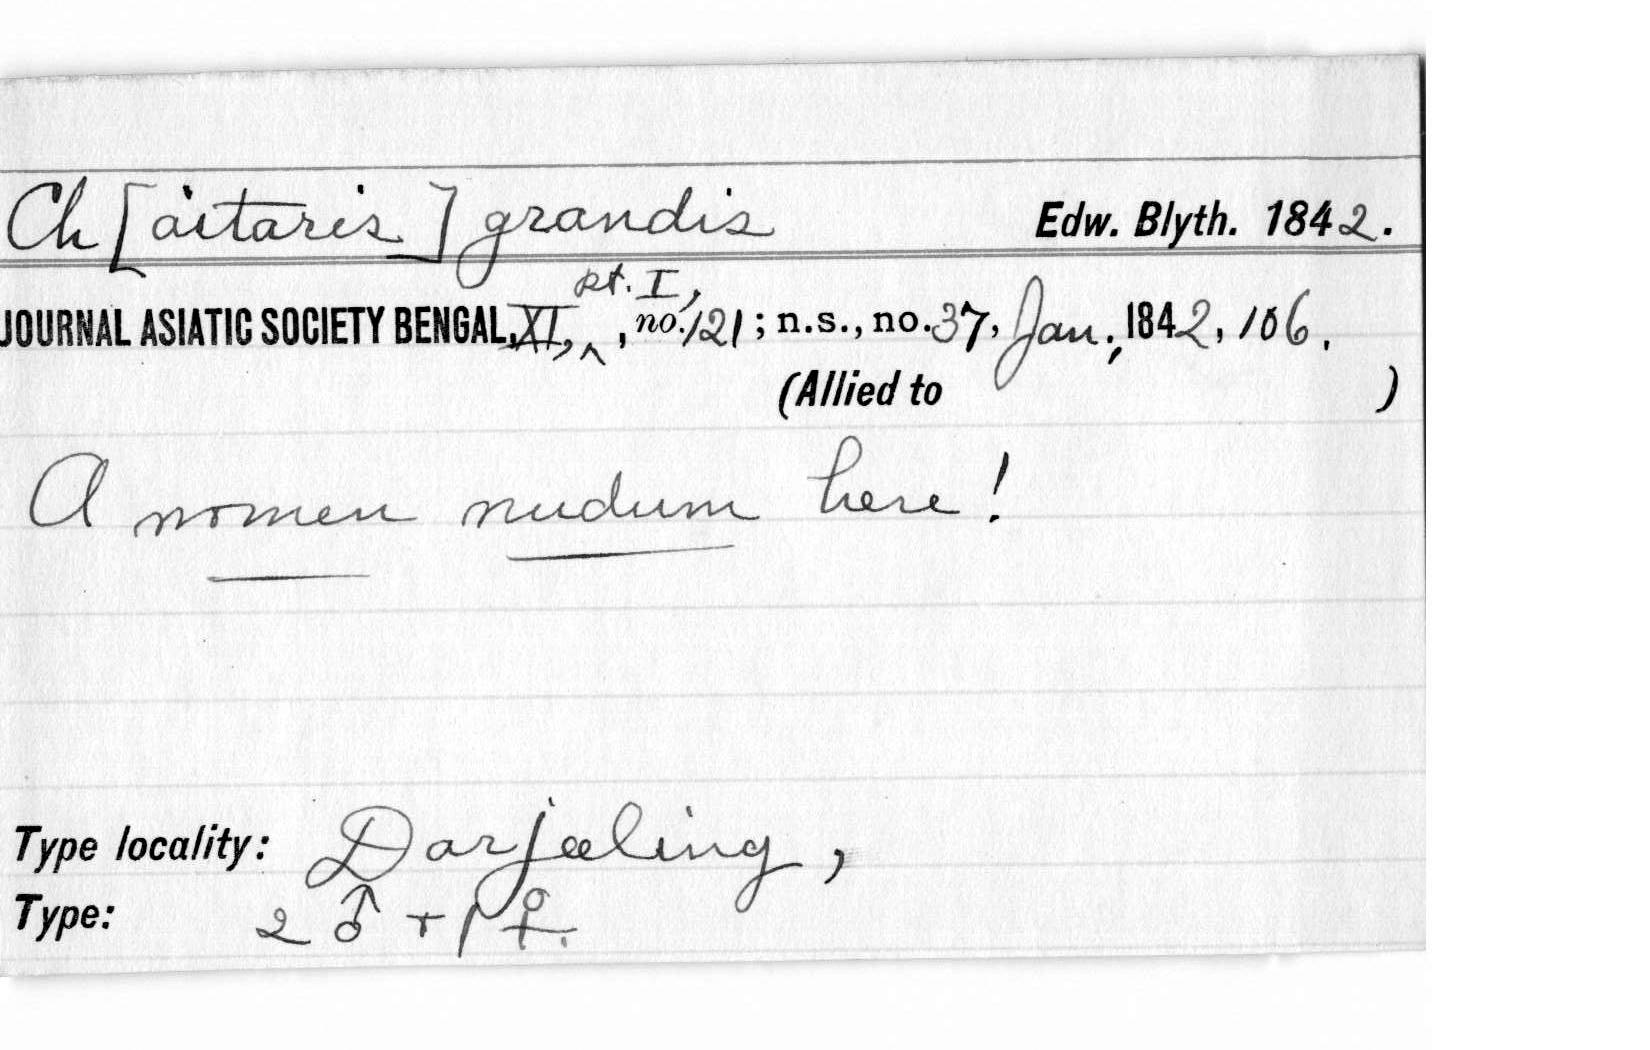 Ch[aitaris] grandis Edw. Blyth. 1842.
JOURNAL ASIATIC SOCIETY BENGAL, XI, pt. I, , no. 121; n.s., no. 37, Jan., 1842, 106.
(Allied to )
A nomen nudum here!
Type locality: Darjeeling,
Type: 2 ♂ + 1 ♀.